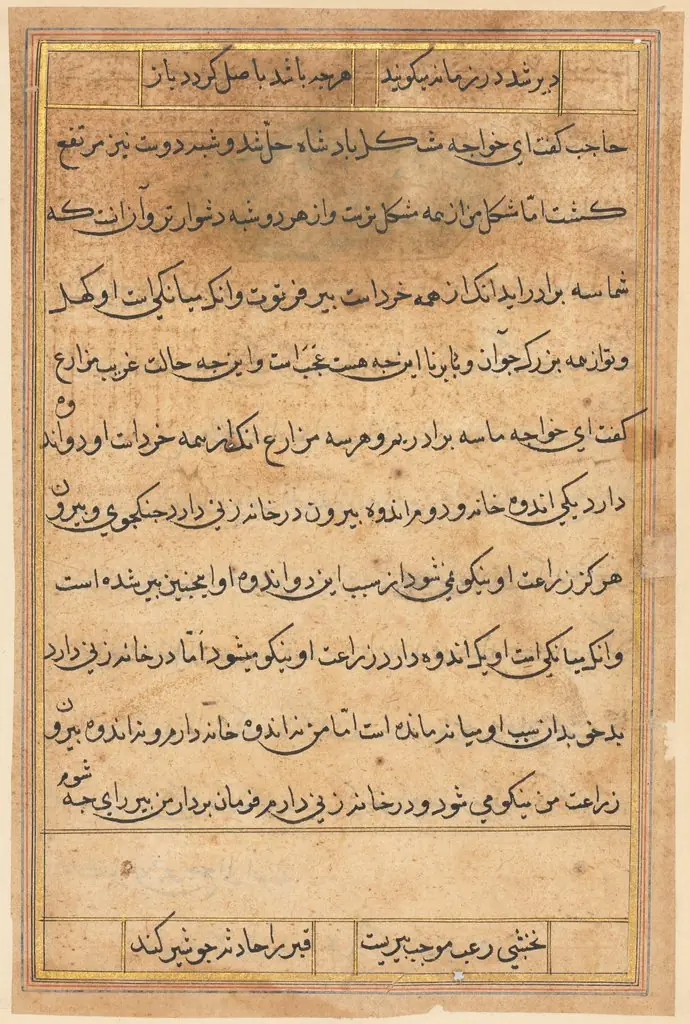 دیر شد در زمانه نیکونید هر چه باشد باصل کردد باز
حاجب کفت ای خواجه مشکل بادشاه حلّ شد و شبه دوست نیز مرتفع
کشت امّا مشکل من از همه مشکل ترست و از هر دو شبه دشوارتر و آن آنست که
شما سه برادراید انک از همه خرداست بیر فرتوت و انک میانکی است او کهل
و تو از همه بزرک جوان و بابرنا این چه هست عَجَب است و این چه حالت غریب مزارع
کفت ای خواجه ما سه برادریم و هر سه مزارع انک از همه خرداست او دو اندوه
دارد یکی اندوه خانه و دوم اندوه بیرون در خانه زنی دارد جنکجوی و بیرون
هرکز زراعت او نیکو نمی شود از سبب این دو اندوه او ایجنین بیر شده است
و انک میانکی است او یک اندوه دارد زراعت او نیکو میشود اَمّا در خانه زنی دارد
بدخو بدان سبب او میانه مانده است امّا من نه اندوه خانه دارم و نه اندوه بیرون
زراعت من نیکو می شود و در خانه زنی دارم فرمان بردار من بیر برای چه شوم
نخشبی رعب موجب بیریست قیر را حادثه جو شیر کند